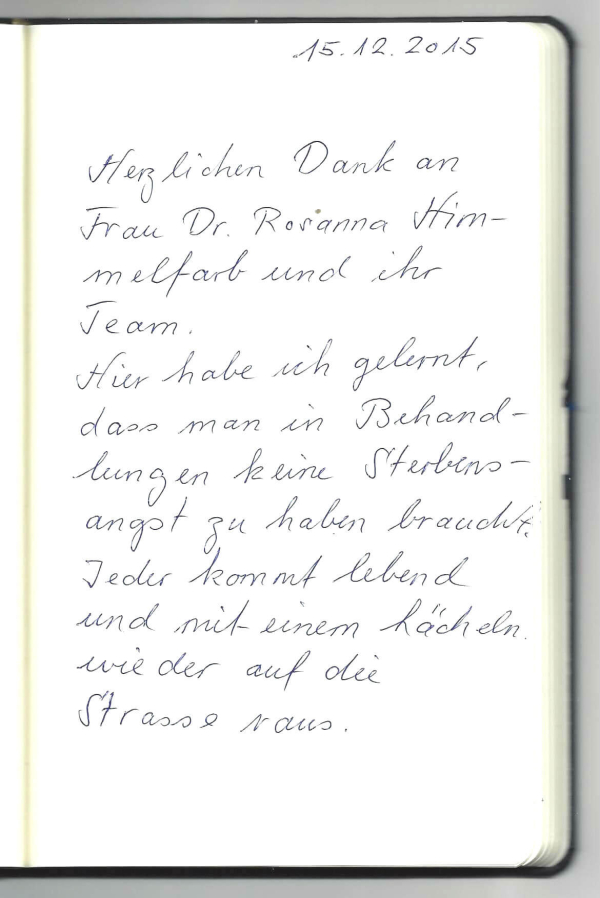 15.12.2015
Herzlichen Dank an
Frau Dr. Rosanna Him-
melfarb und ihr
Team.
Hier habe ich gelernt,
dass man in Behand-
lungen keine Sterbens-
angst zu haben braucht.
Jeder kommt lebend
und mit einem Lächeln
wieder auf die
Strasse raus.